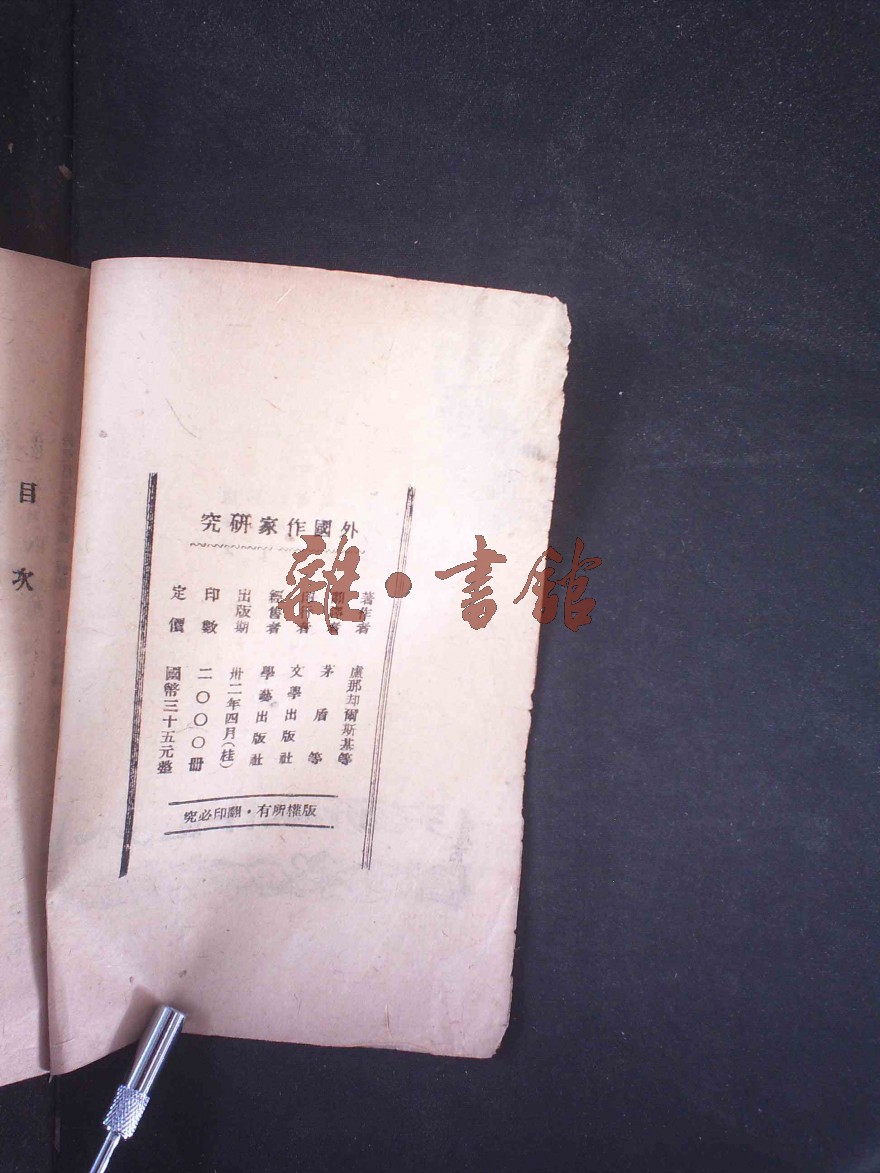 外國作家研究
著作者 盧那却爾斯基等
者 茅盾等
者 文學出版社
經售者 學藝出版社
出版期 卅二年四月(桂)
印數 二〇〇〇冊
定價 國幣三十五元整
版權所有・翻印必究
目次
雜・書館